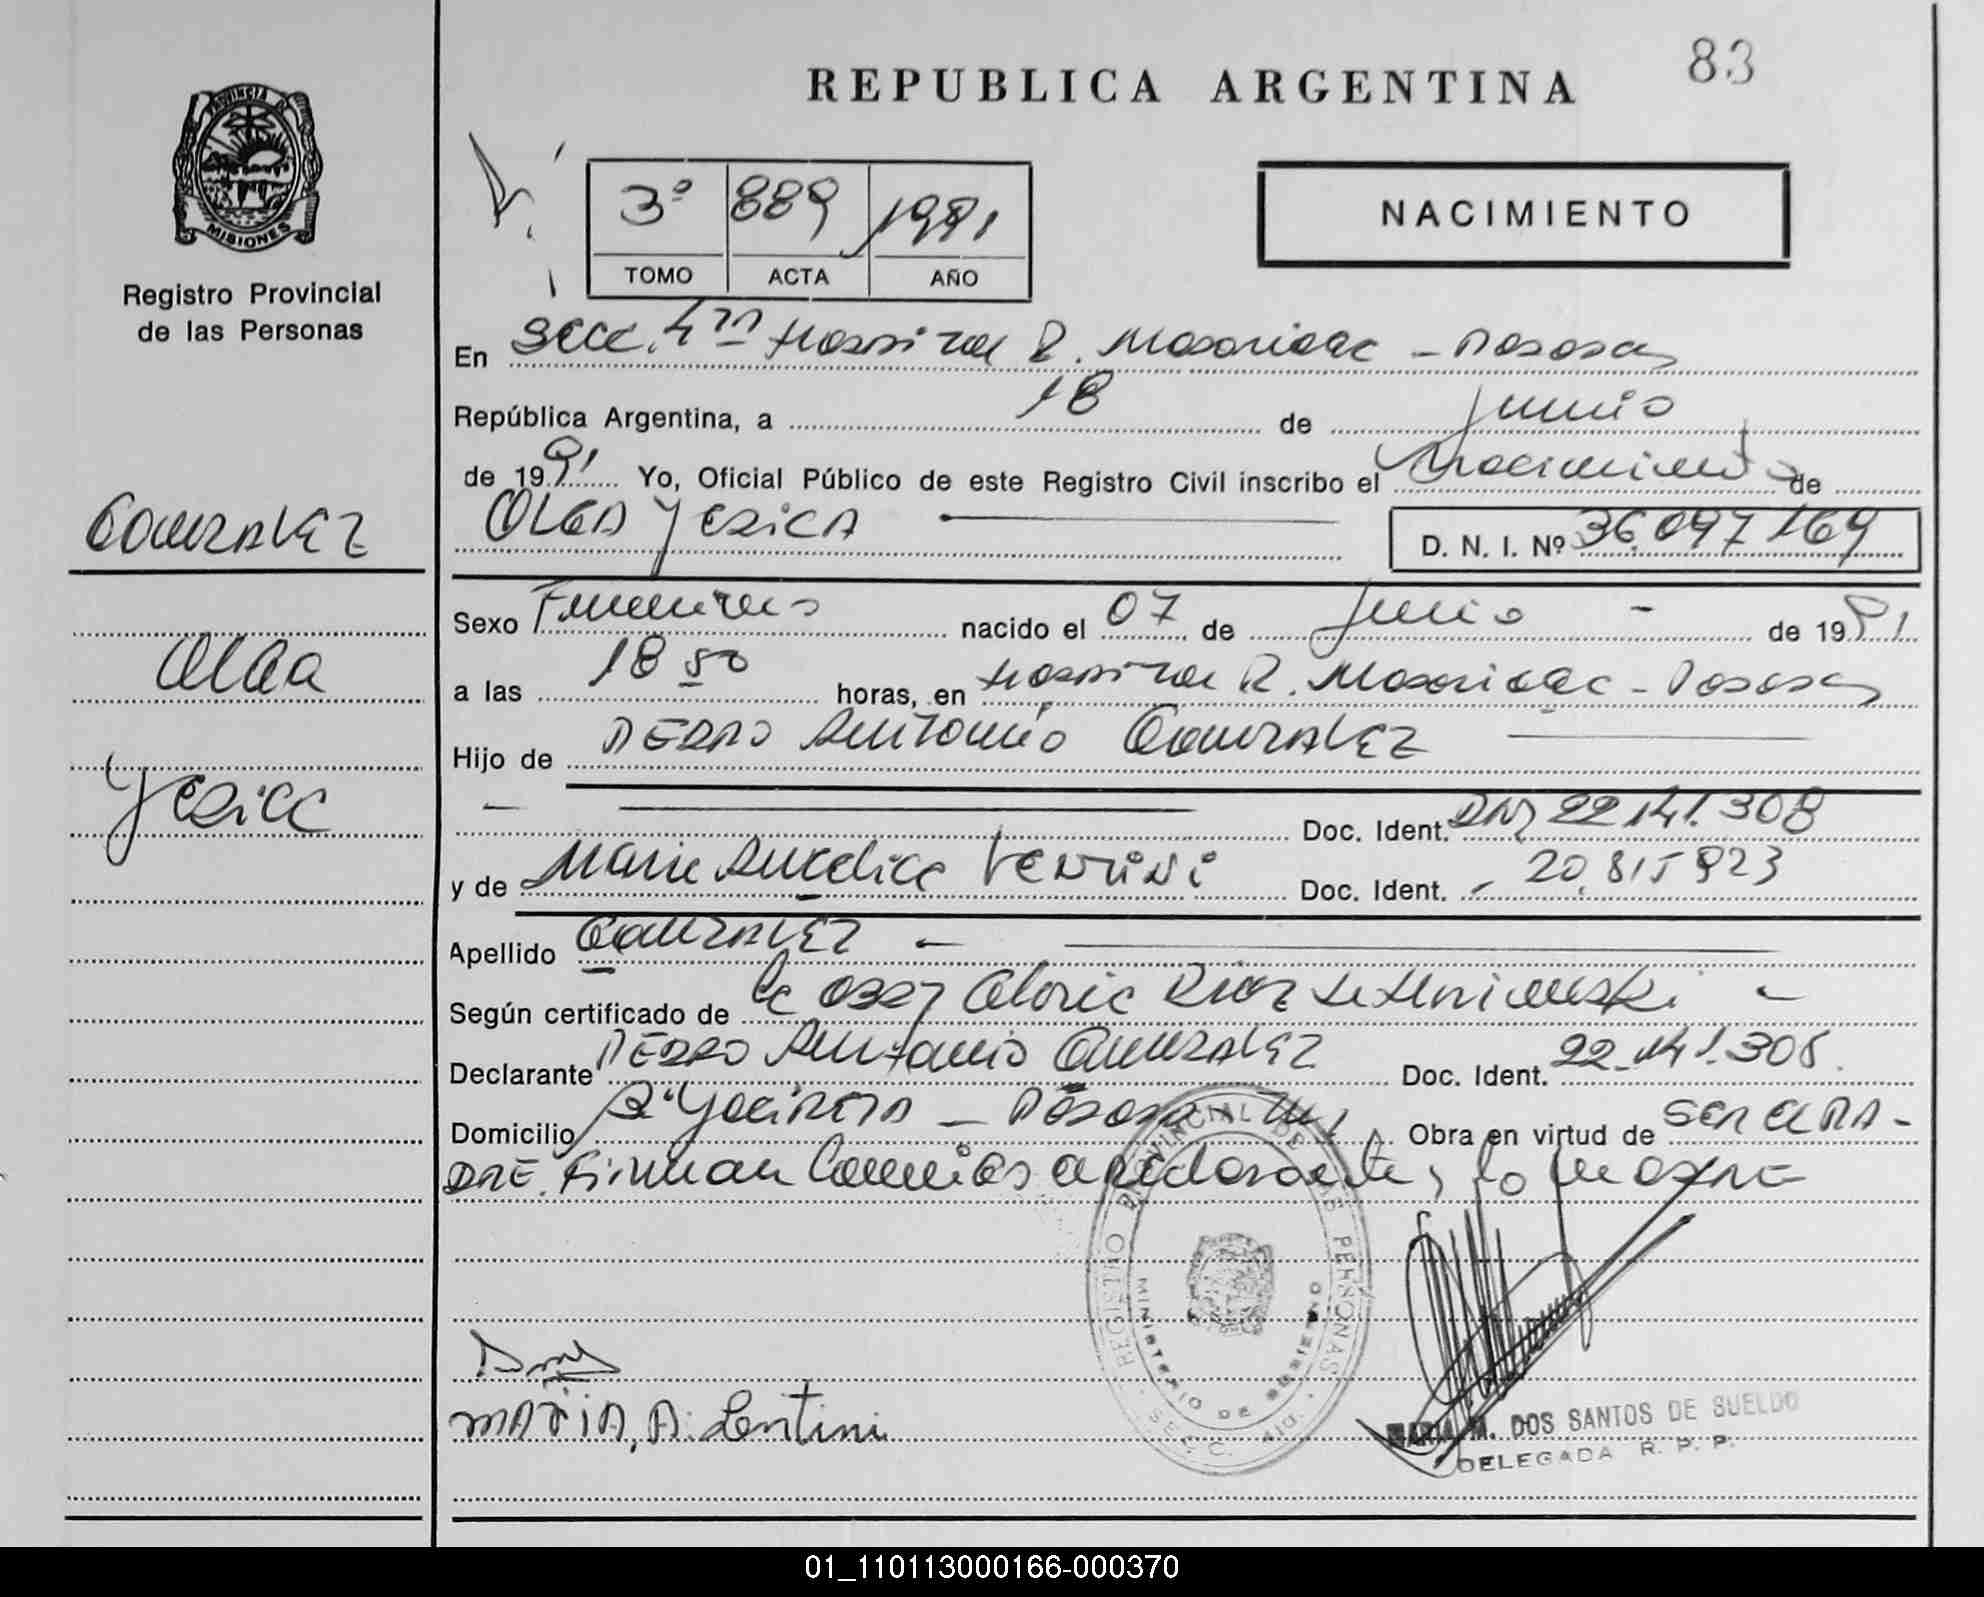 REPUBLICA ARGENTINA
83
PROVINCIA DE
MISIONES
Registro Provincial
de las Personas
3º 889 1991
TOMO ACTA AÑO
NACIMIENTO
En Secc. 4ta Hospital R. Madariaga - Posadas
República Argentina, a 18 de junio
de 1991 Yo, Oficial Público de este Registro Civil inscribo el Nacimiento de
OLGA YESICA
D. N. I. Nº 36.097169
GONZALEZ
Olga
Yesica
Sexo Femenino nacido el 07 de Junio - de 1991
a las 18 50 horas, en Hospital R. Madariaga - Posadas
Hijo de PEDRO Antonio GONZALEZ
Doc. Ident. DNI 22.141.308
y de Maria Aurelia Lentini Doc. Ident. 20.815923
Apellido GONZALEZ -
Según certificado de la Gloria Diaz de
Declarante PEDRO Antonio GONZALEZ Doc. Ident. 22.141.308.
Domicilio Posadas Obra en virtud de SER EL PA-
DRE. Firman la madre
REGISTRO PROVINCIAL DE LAS PERSONAS
MINISTERIO DE GOBIERNO
SECC. 4ta.
MARIA, A. Lentini
MARIA M. DOS SANTOS DE SUELDO
DELEGADA R. P. P.
01_110113000166-000370